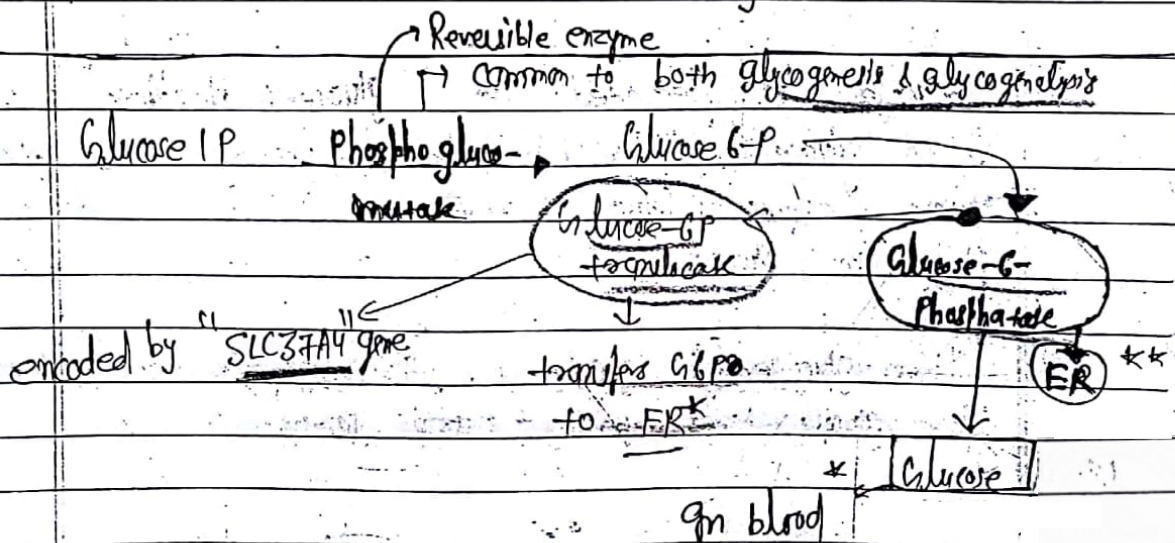 Reversible enzyme
common to both glycogenesis & glycogenolysis
Glucose 1P Phosphogluco- Glucose 6-P
mutase
Glucose-6P
translocase
Glucose-6-
Phosphatase
encoded by "SLC37A4" gene
transfers G6P
to ER*
ER **
* Glucose
In blood